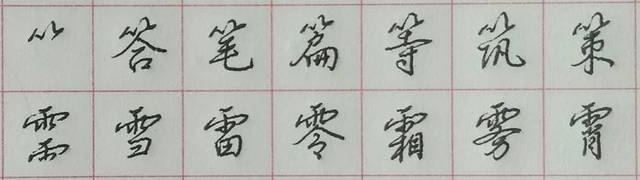 ⺮答笔篇等筑策
⻗雪雷零霜雾霄